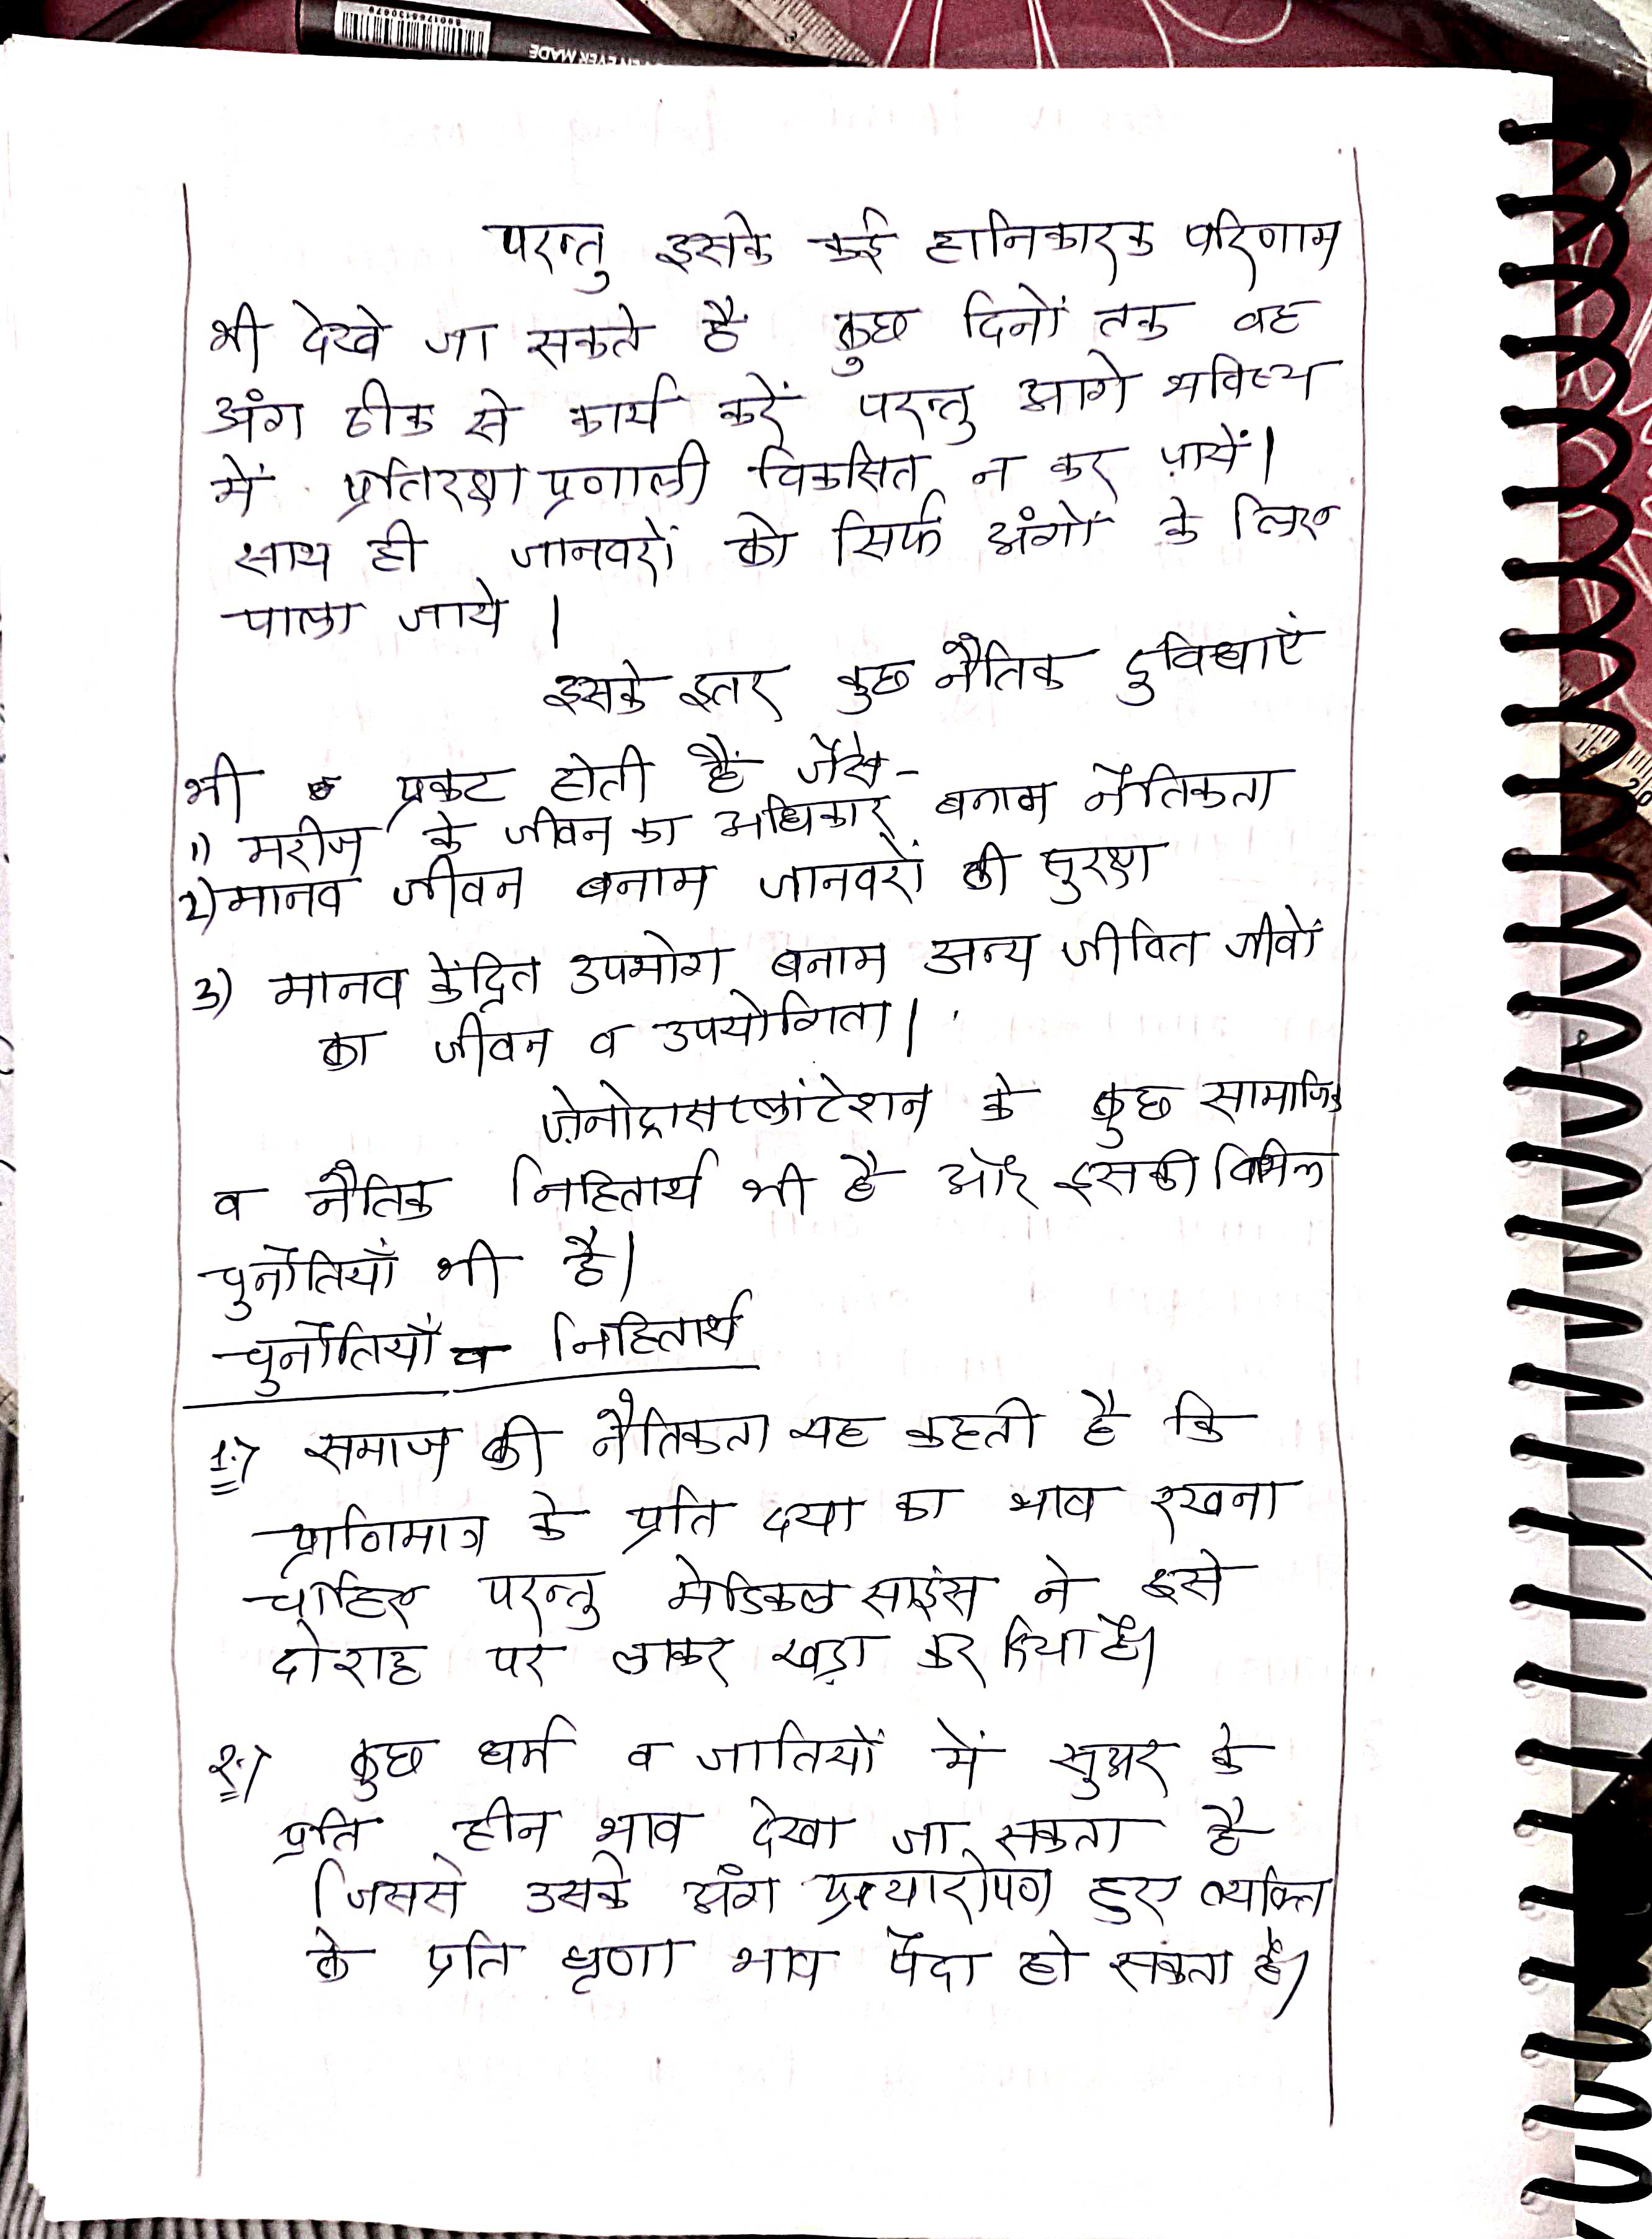 परन्तु इसके कई हानिकारक परिणाम
भी देखे जा सकते हैं कुछ दिनों तक वह
अंग ठीक से कार्य करें परन्तु आगे भविष्य
में प्रतिरक्षा प्रणाली विकसित न कर पायें।
साथ ही जानवरों को सिर्फ अंगों के लिए
पाला जाये।
इसके इतर कुछ नैतिक दुविधाएं
भी प्रकट होती हैं जैसे-
1) मरीज के जीवन का अधिकार बनाम नैतिकता
2) मानव जीवन बनाम जानवरों की सुरक्षा
3) मानव केंद्रित उपभोग बनाम अन्य जीवित जीवों
का जीवन व उपयोगिता।
ज़ेनोट्रासप्लांटेशन के कुछ सामाजिक
व नैतिक निहितार्थ भी है और इसकी विभिन्न
चुनौतियाँ भी है।
चुनौतियाँ व निहितार्थ
1.> समाज की नैतिकता यह कहती है कि
प्राणिमात्र के प्रति दया का भाव रखना
चाहिए परन्तु मेडिकल साइंस ने इसे
दोराह पर लाकर खड़ा कर दिया है।
2.> कुछ धर्म व जातियों में सुअर के
प्रति हीन भाव देखा जा सकता है
जिससे उसके अंग प्रत्यारोपण हुए व्यक्ति
के प्रति घृणा भाव पैदा हो सकता है।